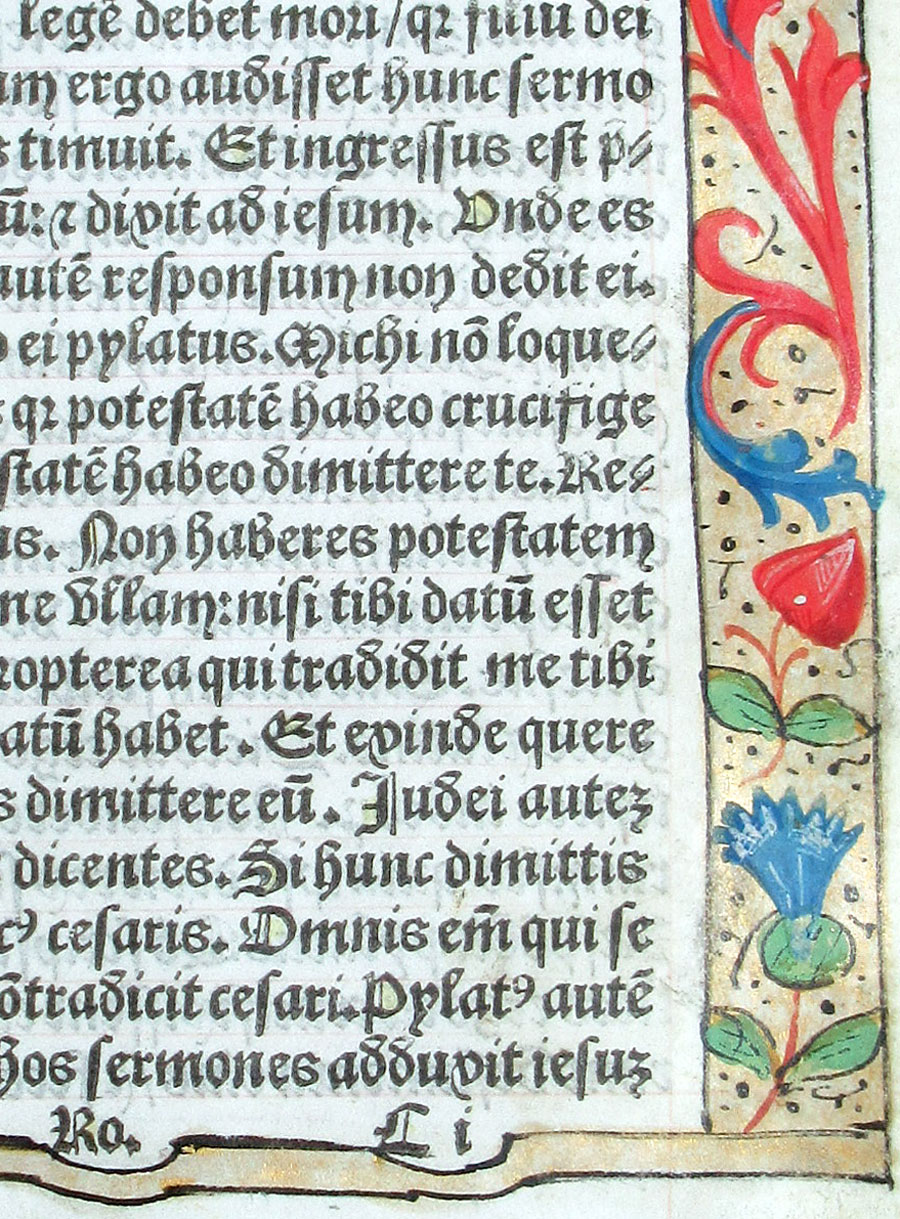 legē debet mori/qꝛ filiū dei
ergo audisset hunc sermo
timuit. Et ingressus est p̄⸗
ū: ⁊ dixit ad iesum. Vnde es
autē responsum non dedit ei.
ei pylatus. Michi nō loque⸗
qꝛ potestatē habeo crucifige
statē habeo dimittere te. Re⸗
as. Non haberes potestatem
ne vllam: nisi tibi datū esset
ropterea qui tradidit me tibi
atū habet. Et exinde quere
s dimittere eū. Iudei auteꝫ
dicentes. Si hunc dimittis
cꝰ cesaris. Omnis em̄ qui se
ōtradicit cesari. Pylatꝰ autē
hos sermones adduxit iesuꝫ
Ro. C i